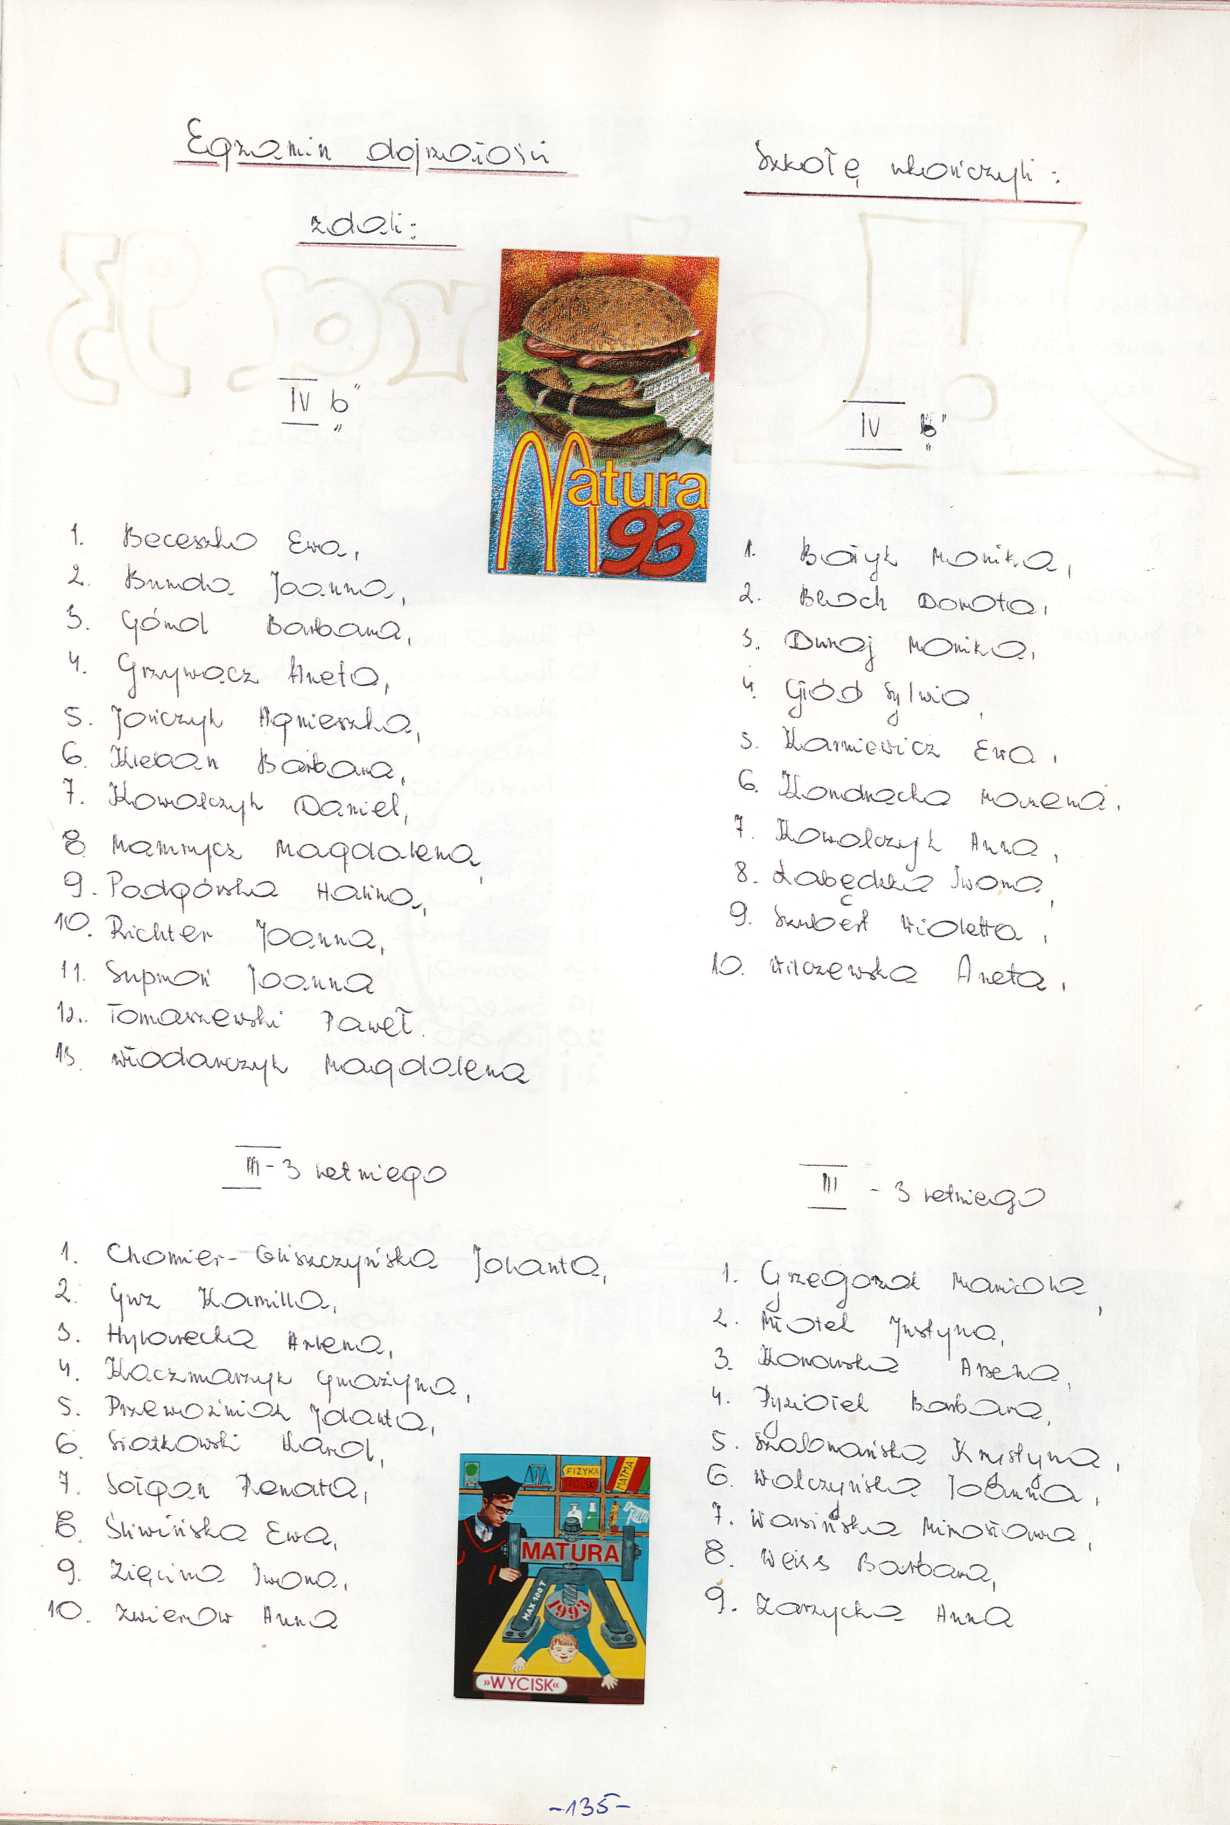 Egzamin dojrzałości
zdali:
IV „b"
1. Beceszko Ewa,
2. Burnda Joanna,
3. Górnal Barbara,
4. Grzywacz Aneta,
5. Jończyk Agnieszka,
6. Kleban Barbara,
7. Kowalczyk Daniel,
8. Mamrycz Magdalena,
9. Podgórska Halina,
10. Richter Joanna,
11. Suproń Joanna
12. Tomaszewski Paweł.
13. Włodarczyk Magdalena
III - 3 letniego
1. Chomier-Gliszczyńska Jolanta,
2. Gwz Kamilla,
3. Hylarecka Arlena,
4. Kaczmarzyk Grażyna,
5. Przewoźniak Jolanta,
6. Siatkowski Karol,
7. Sołgan Renata,
8. Śliwińska Ewa,
9. Zięcina Iwona,
10. Zwierow Anna
Szkołę ukończyli:
IV „b"
1. Bałyk Monika,
2. Bloch Dorota,
3. Dunaj Monika,
4. Głód Sylwia,
5. Karniewicz Ewa,
6. Kondracka Marzena,
7. Kowalczyk Anna,
8. Łabędzka Iwona,
9. Szubert Wioletta,
10. Wilczewska Aneta,
III - 3 letniego
1. Grzegorzak Mariola,
2. Miotek Justyna,
3. Konowska Arzena,
4. Pyziołek Barbara,
5. Szalbmańska Krystyna,
6. Walczyńska Joanna,
7. Warsińska Mirosława,
8. Weiss Barbara,
9. Zarzycka Anna
Matura
93
FIZYKA
MATMA
MATURA
MAX 100T
1993
»WYCISK«
-135-